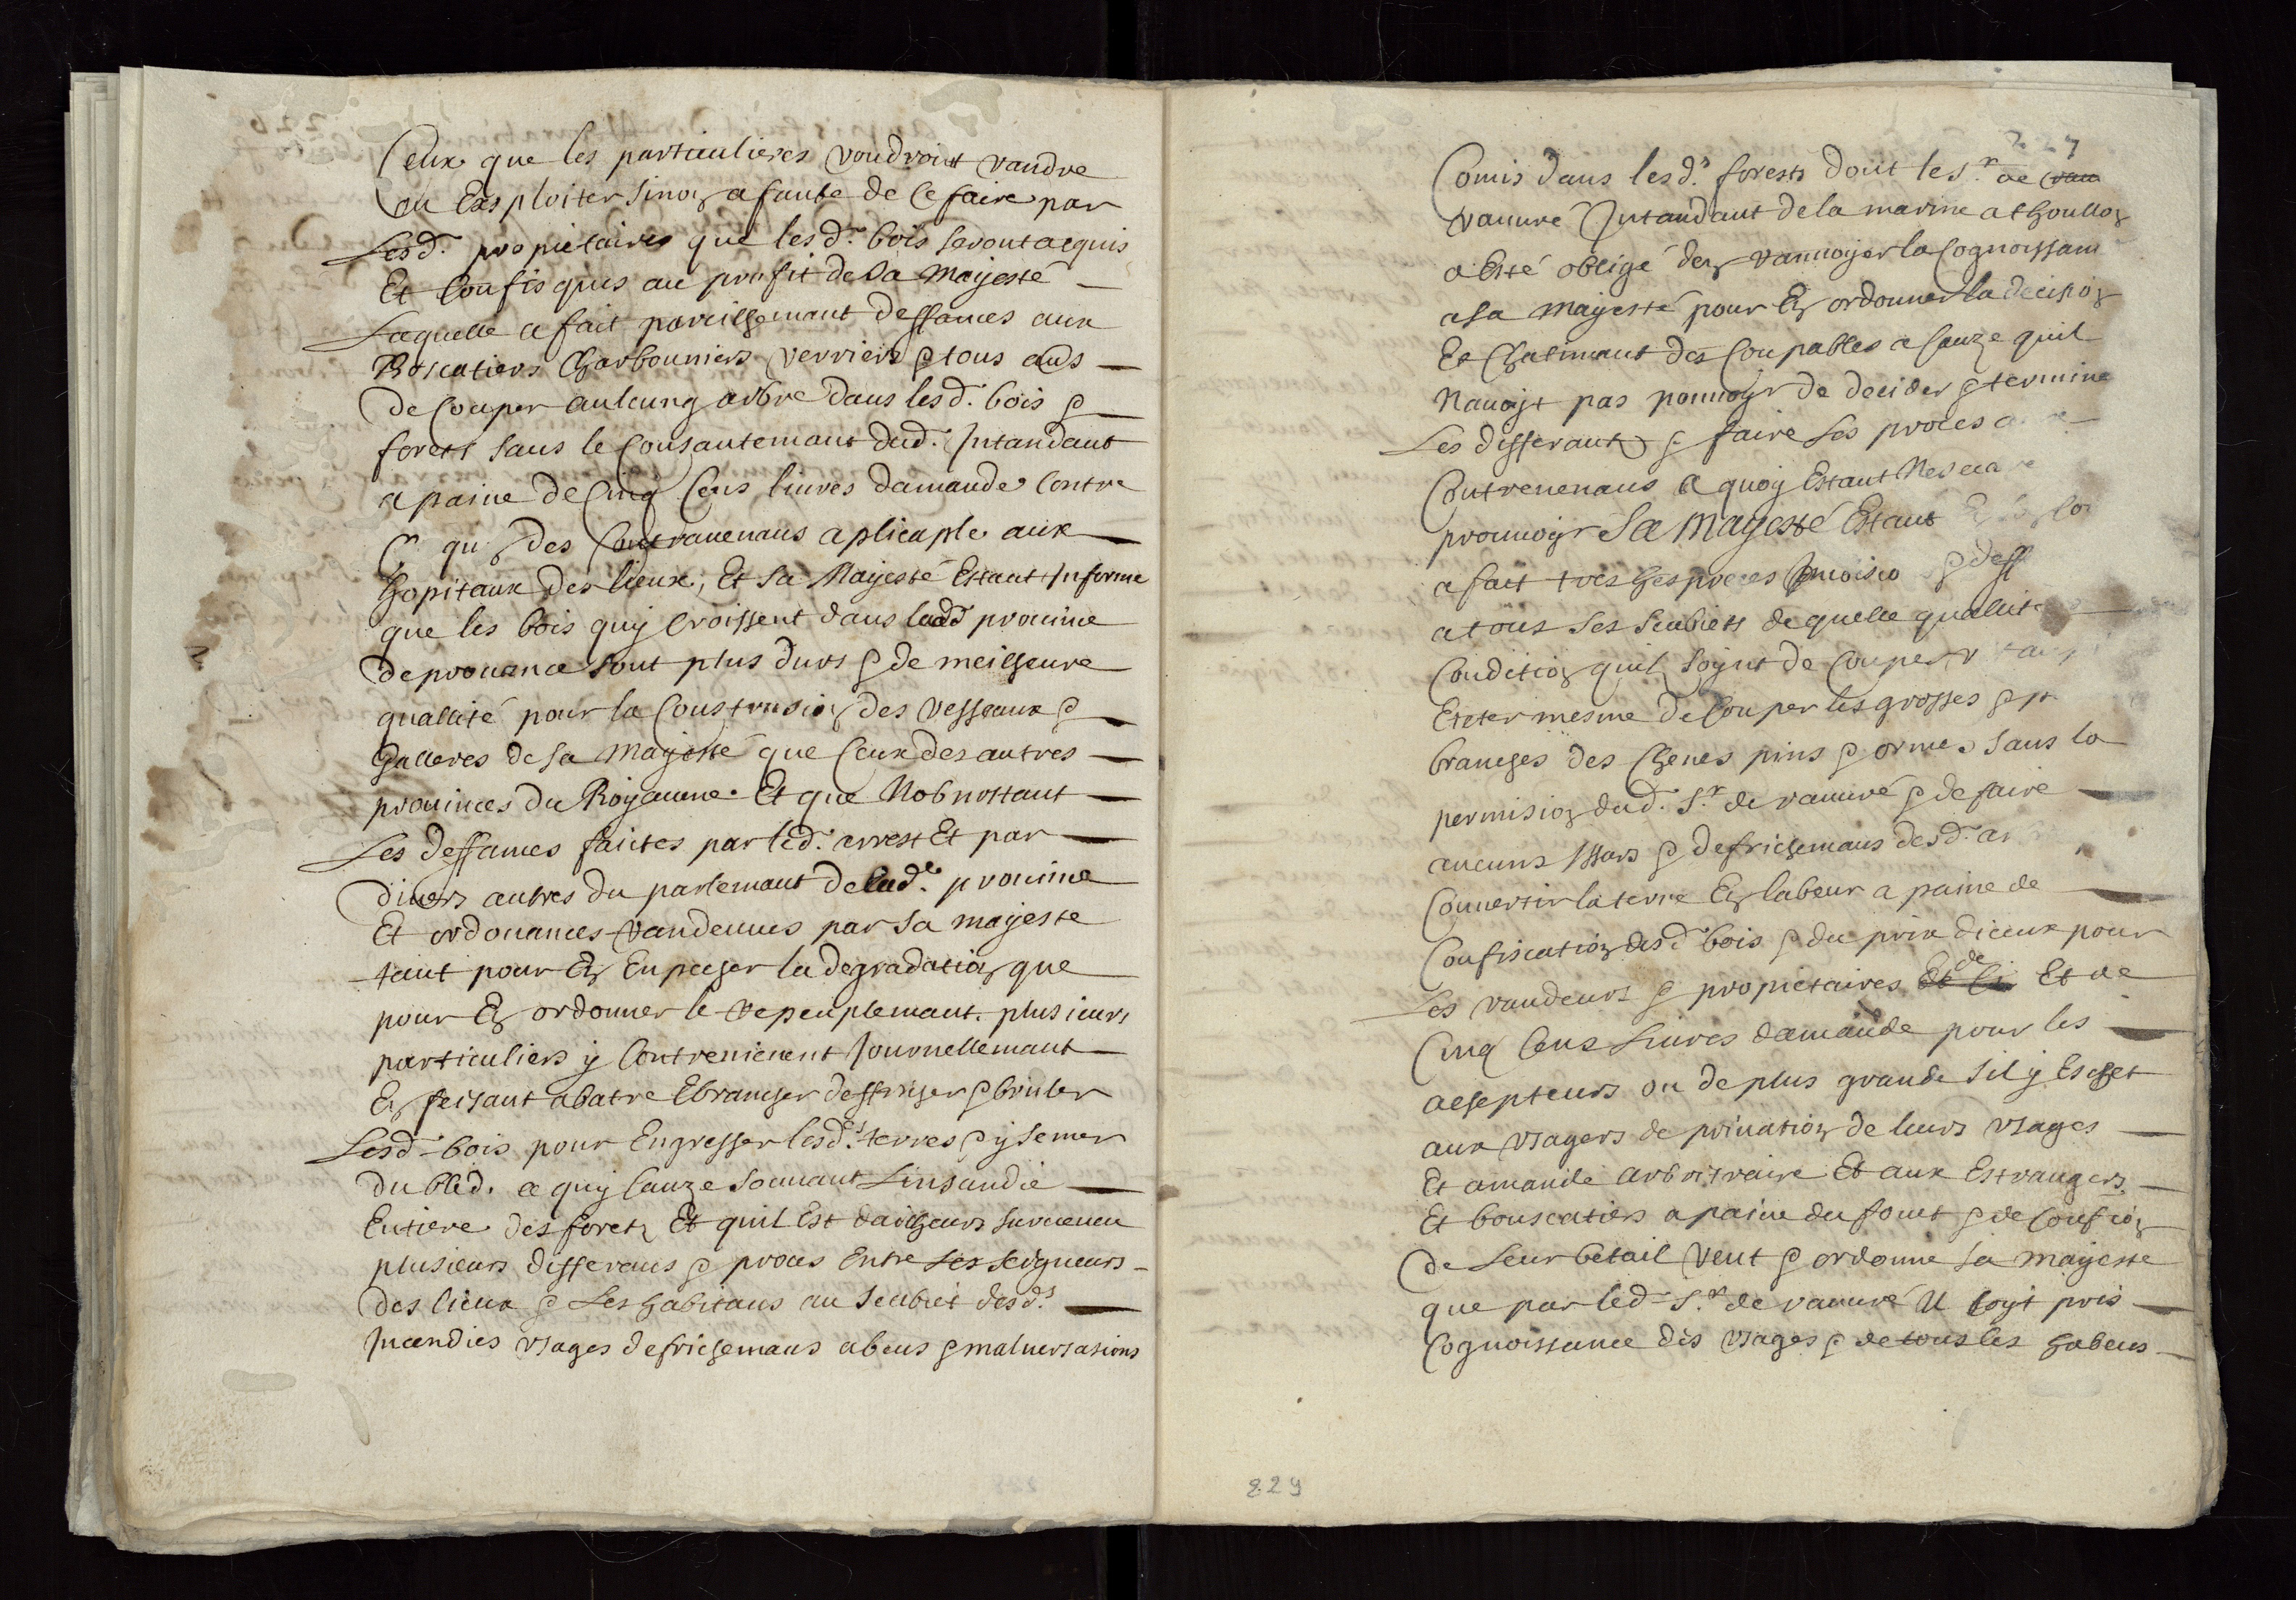 Ceux que les particulieres voudroint vandre
ou Exsploiter sinon a faute de ce faire par
Lesd. propietaires que lesd. bois seront acquis
Et Confisques au profit de Sa Mayesté
Laquelle a fait pareilhemant deffances aux
Boscatiers Charbonniers verriers & tous aus
de Couper aulcung arbre dans lesd. bois &
forets sans le Consantemant dud. Intandant
a paine de Cinq Cens livres damande contre
des Contravenans aplicaple aux
hopitaux des lieux, Et Sa Mayesté Estant Informe
que les bois quy Croissent dans ladd province
de provance sont plus durs & de meilheure
quallité pour la Construsion des vesseaux &
Galleres de Sa Mayesté que Ceux des autres
provinces du Royaume. Et que Nobnostant
Les deffances faictes par led. arrest Et par
divers autres du parlemant de lad. province
Et ordonances randeues par Sa mayeste
tant pour En Enpecher la degradation que
pour En ordonner le repeuplemant. plusieurs
particuliers y Contrevienent Journellemant
En feisant abatre Ebrancher deffricher & bruler
Lesd. bois pour Engresser lesd. terres & y semer
du bled. a quy Cauze souvant Linsandie
Entiere des forets Et quil Est dailheurs surveneu
plusieurs differans & proces Entre Les seigneurs
des lieux & Les habitans au Seubiet desd.
Incendies vsages defrichemans abeus & malversasions
227
Comis dans lesd. forests dont le Sr. de
vauvre Intandant de la marine a thoullon
a Esté obligé den ranvoyer la Cognoissan
a Sa Mayesté pour En ordonner la decision
Et Chatimant des Coupables a Cauze quil
Navoyt pas pouvoyr de decider & termine
Les differants & faire Les proces
Contrevenans a quoy Estant
prouvoyr Sa Mayesté Estant
a fait tres hespreces
a tous ses Seubiets de quelle quallit
Condition quil soynt de Couper
mesme de Couper les grosses &
branches des Chenes pins & ormes sans la
permision dud. Sr. de vauvré & de faire
aucuns Issars & defrichemans desd. ar
Convertir la terre En labeur a paine de
Confiscation desd bois & du prix dieux pour
Les vandeurs & propietaires de Et de
Cinq Cens Livres damande pour les
achepteurs ou de plus grande sil y Eschet
aux vsagers de privation de leurs vsages
Et amande arbritraire Et aux Estrangers
Et bouscatiers a paine du fouet & de Confion
de Leur betail veut & ordonne Sa mayeste
que par led. Sr. de vauvré Il soyt pris
Cognoissance des vsages & de tous les habeus
829